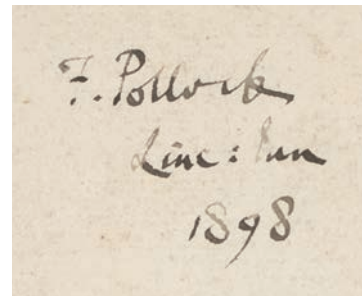 F. Pollock
Linc: Inn
1898